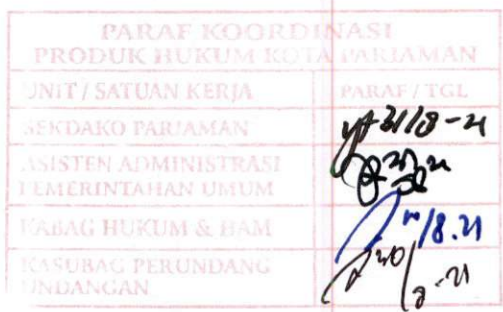 PARAF KOORDINASI
PRODUK HUKUM KOTA PARIAMAN
UNIT / SATUAN KERJA PARAF / TGL
SEKDAKO PARIAMAN 31/8-21
ASISTEN ADMINISTRASI
PEMERINTAHAN UMUM
KABAG HUKUM & HAM /8.21
KASUBAG PERUNDANG
UNDANGAN